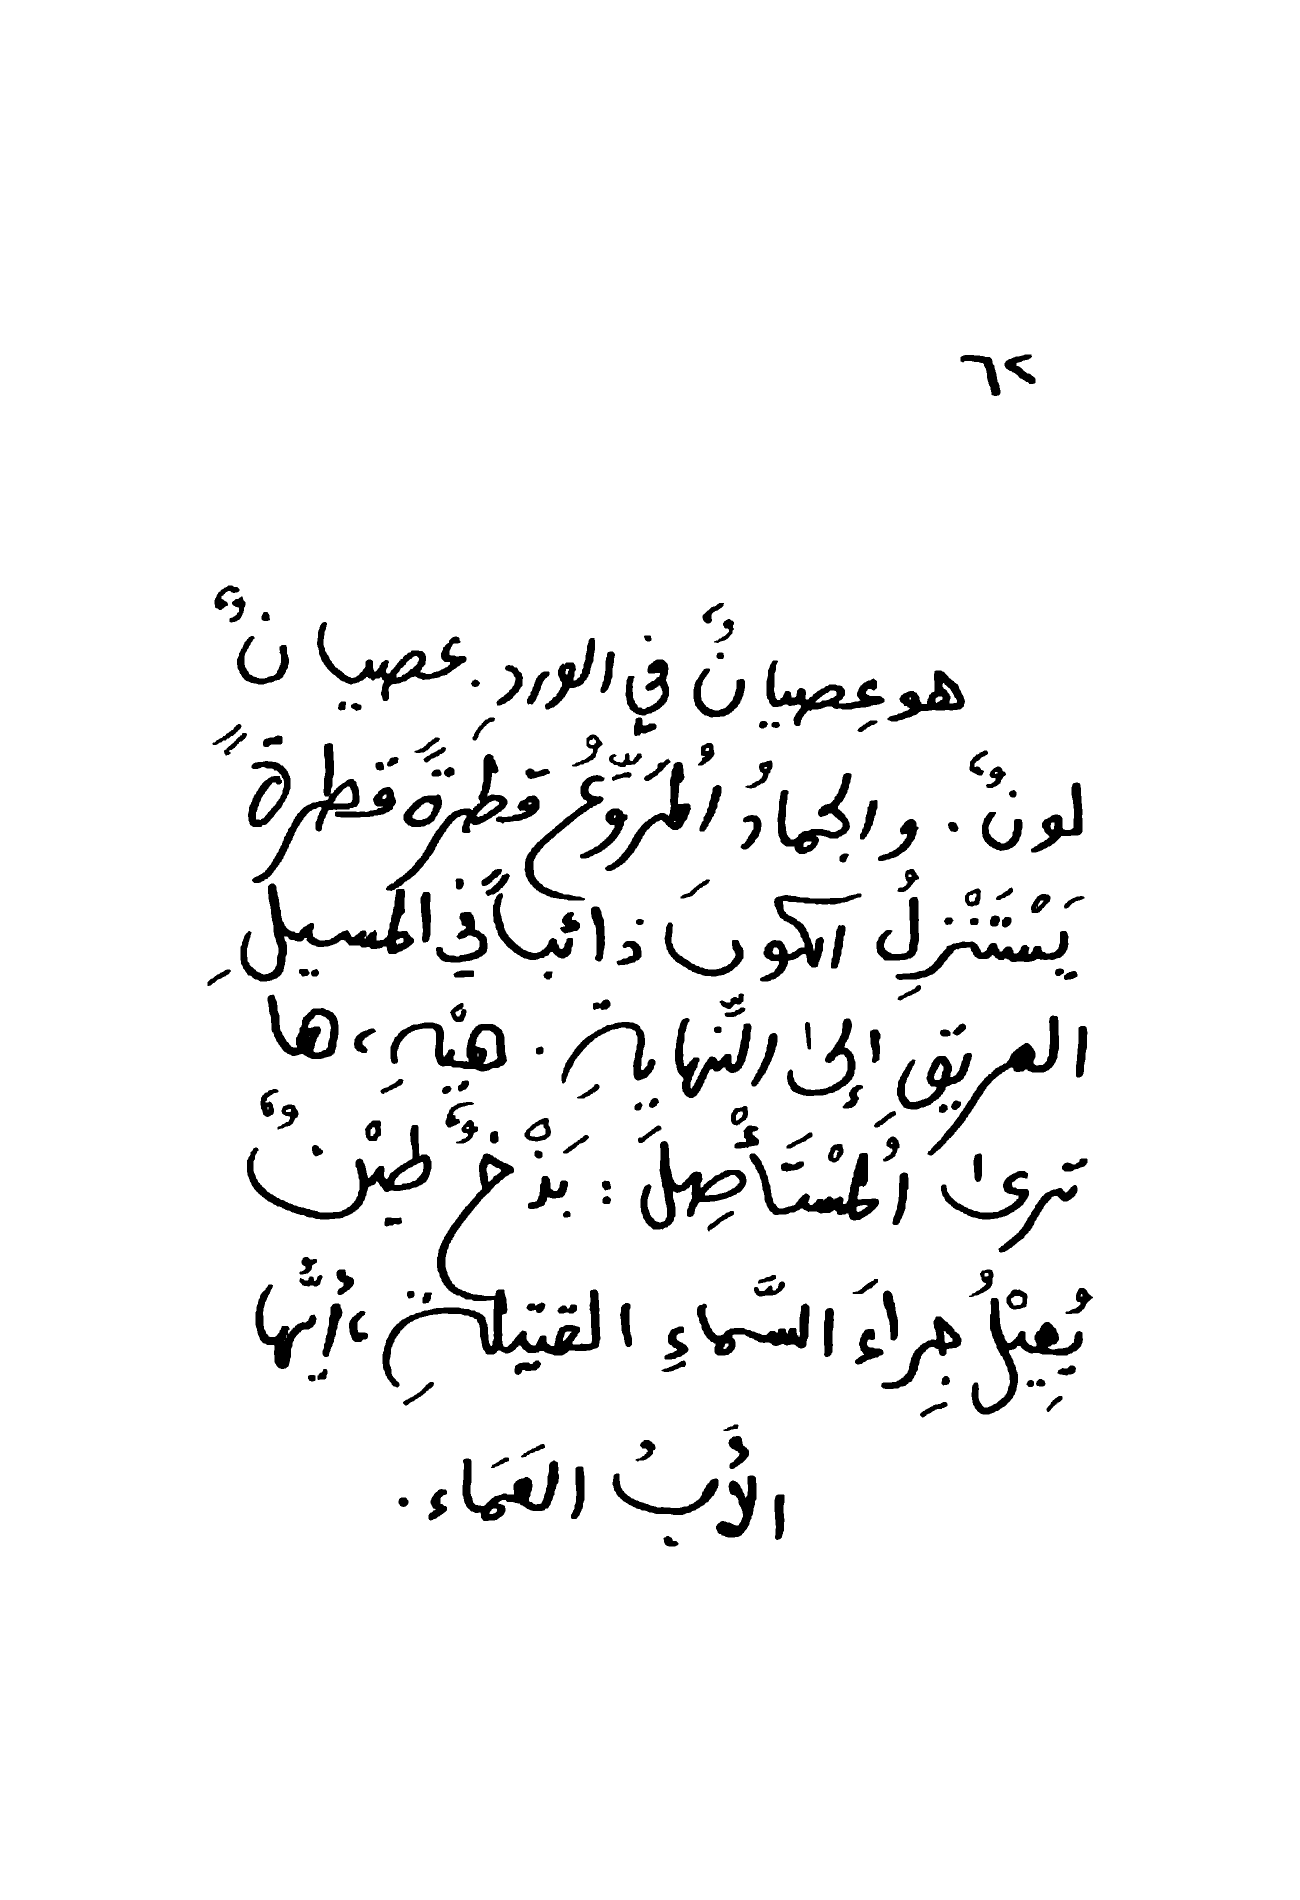 ٦٢
هو عِصيانٌ في الوردِ. عصيانٌ
لونٌ. والجمادُ المُرَوَّعُ قطرَةً قطرةً
يَسْتَنْزِلُ الكونَ ذائباً في المسيلِ
العريقِ إلىٰ النِّهايةِ. هيْهِ، ها
ترىٰ المُسْتَأْصِلَ : بَذْخٌ طيْنٌ
يُعِيْلُ جِراءَ السَّماءِ القتيلةِ، أيُّها
الأَبُ العَمَاء.